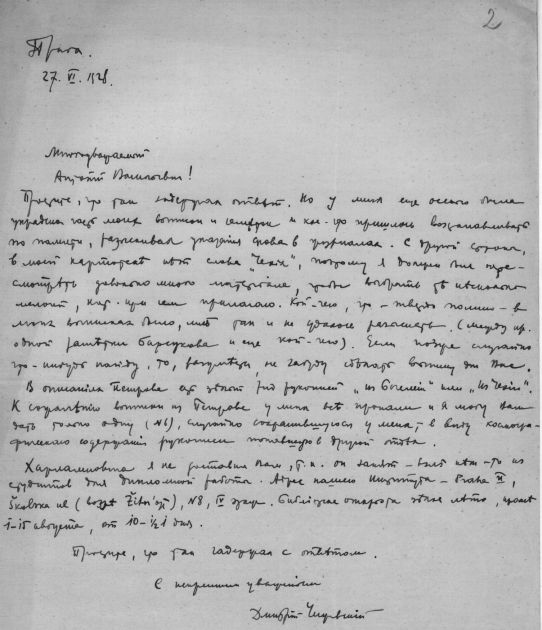 2
Прага.
27. VI. 1928.
Многоуважаемый
Василевич!
Простите, что так задержал ответ. Но у меня еще осенью была
украдена часть моих выписок и кое-что пришлось восстанавливать
по памяти, разыскивая указания снова в журналах. С другой стороны,
в моей картотеке нет слова „ “, поэтому я должен был пере-
смотреть довольно много материала, чтобы выбрать те несколько
мелочей, при сем прилагаю. Кой-чего, что - твердо помню - в
моих выписках было, мне так и не удалось разыскать (между пр.
одной заметки Барсукова и еще кой-чего). Если позже случайно
что-нибудь найду, то, разумеется, не
В описаниях Петрова есть рукописей „из “ или „из “.
К сожалению выписки из Петрова у меня все пропали и я могу Вам
дать только одну (№6), случайно сохранившуюся у меня, в виду космогра-
фического содержания рукописи попавшую в другой отдел.
Харламповича я не доставил Вам, т. к. он занят - взял его кто-то из
студентов для дипломной работы. Адрес нашего Института - Praha II,
Školská ul ( Žitné), №8, IV этаж. Библиотека открыта летом, кроме
1-15 августа, от 10-½1 дня.
Простите, что так задержал с ответом.
С искренним уважением
Дмитрий Чижевский